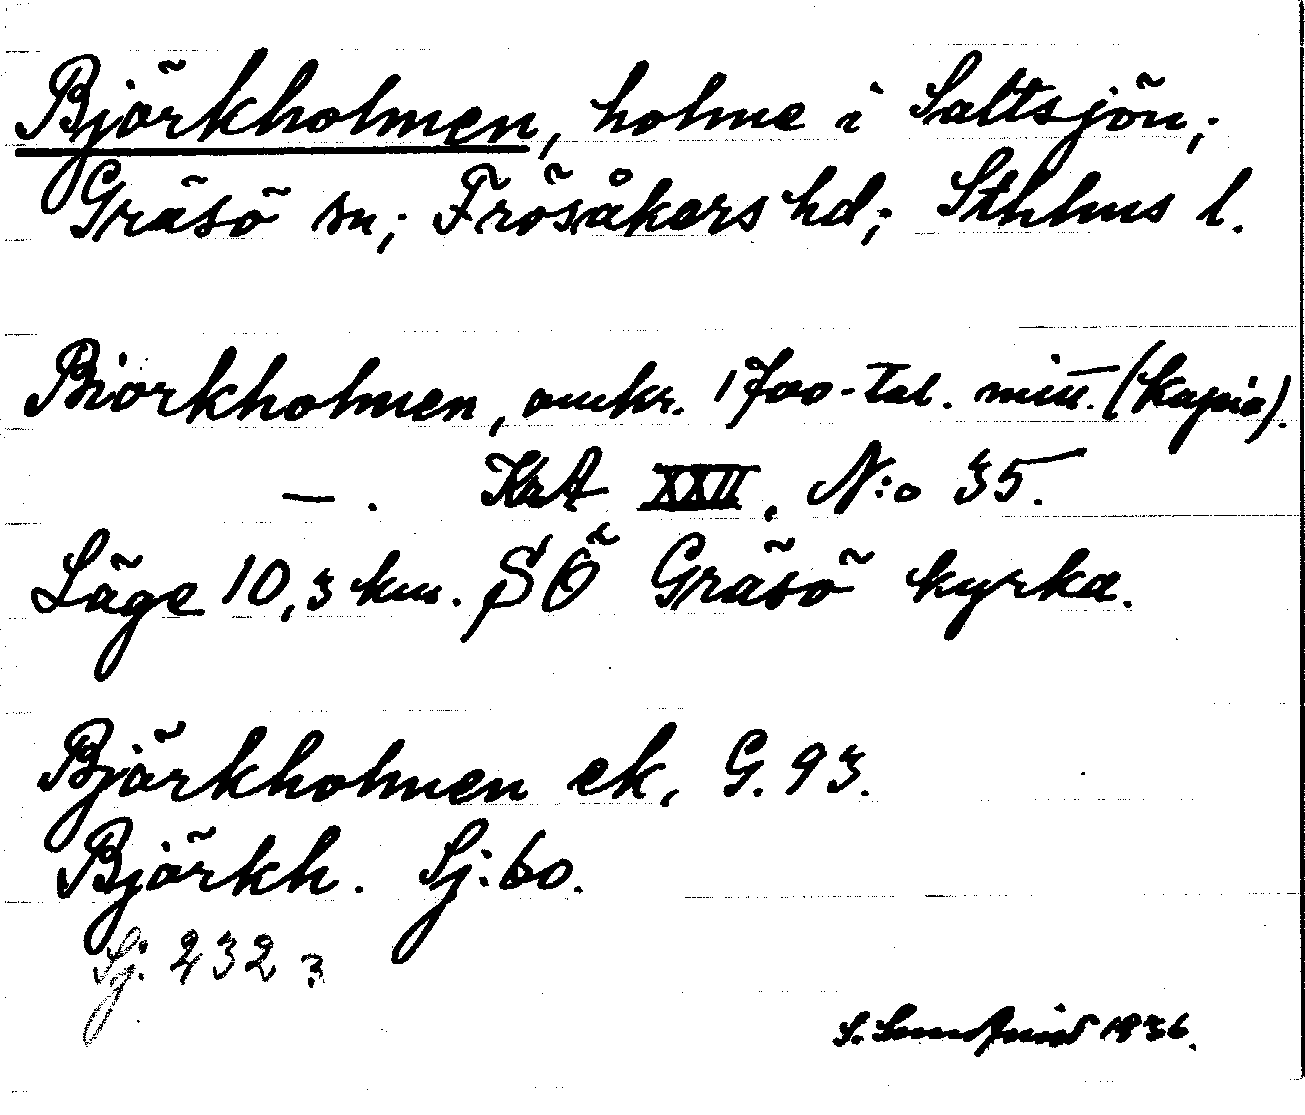 Björkholmen, holme i Saltsjön;
Gräsö sn; Frösåkers hd; Sthlms l.
Biorkholmen, omkr. 1700-tal. mitt. (Kopia).
— . KrA XXII, N:o 35.
Läge 10,3 km. SÖ Gräsö kyrka.
Björkholmen ek, G. 93.
Björkh. Sj: 60.
Sj. 232 3
S. Sundqvist 1936.